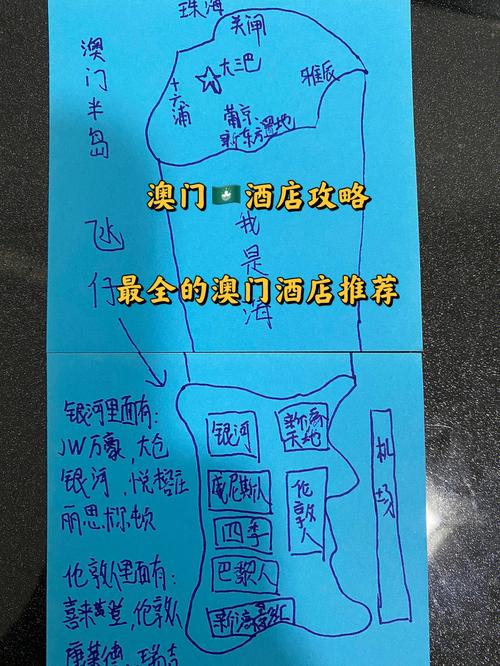 珠海
关闸
澳门半岛
大三巴
雅辰
十六浦
葡京
新东方置地
澳门🇲🇴酒店攻略
我是海
氹仔
最全的澳门酒店推荐
银河里面有:
JW万豪,大仓
银河,悦榕庄
丽思标顿
银河
新濠
天地
威尼斯人
伦敦人
四季
巴黎人
新濠影汇
机场
伦敦人里面有:
喜来登,伦敦人
康莱德,瑞吉